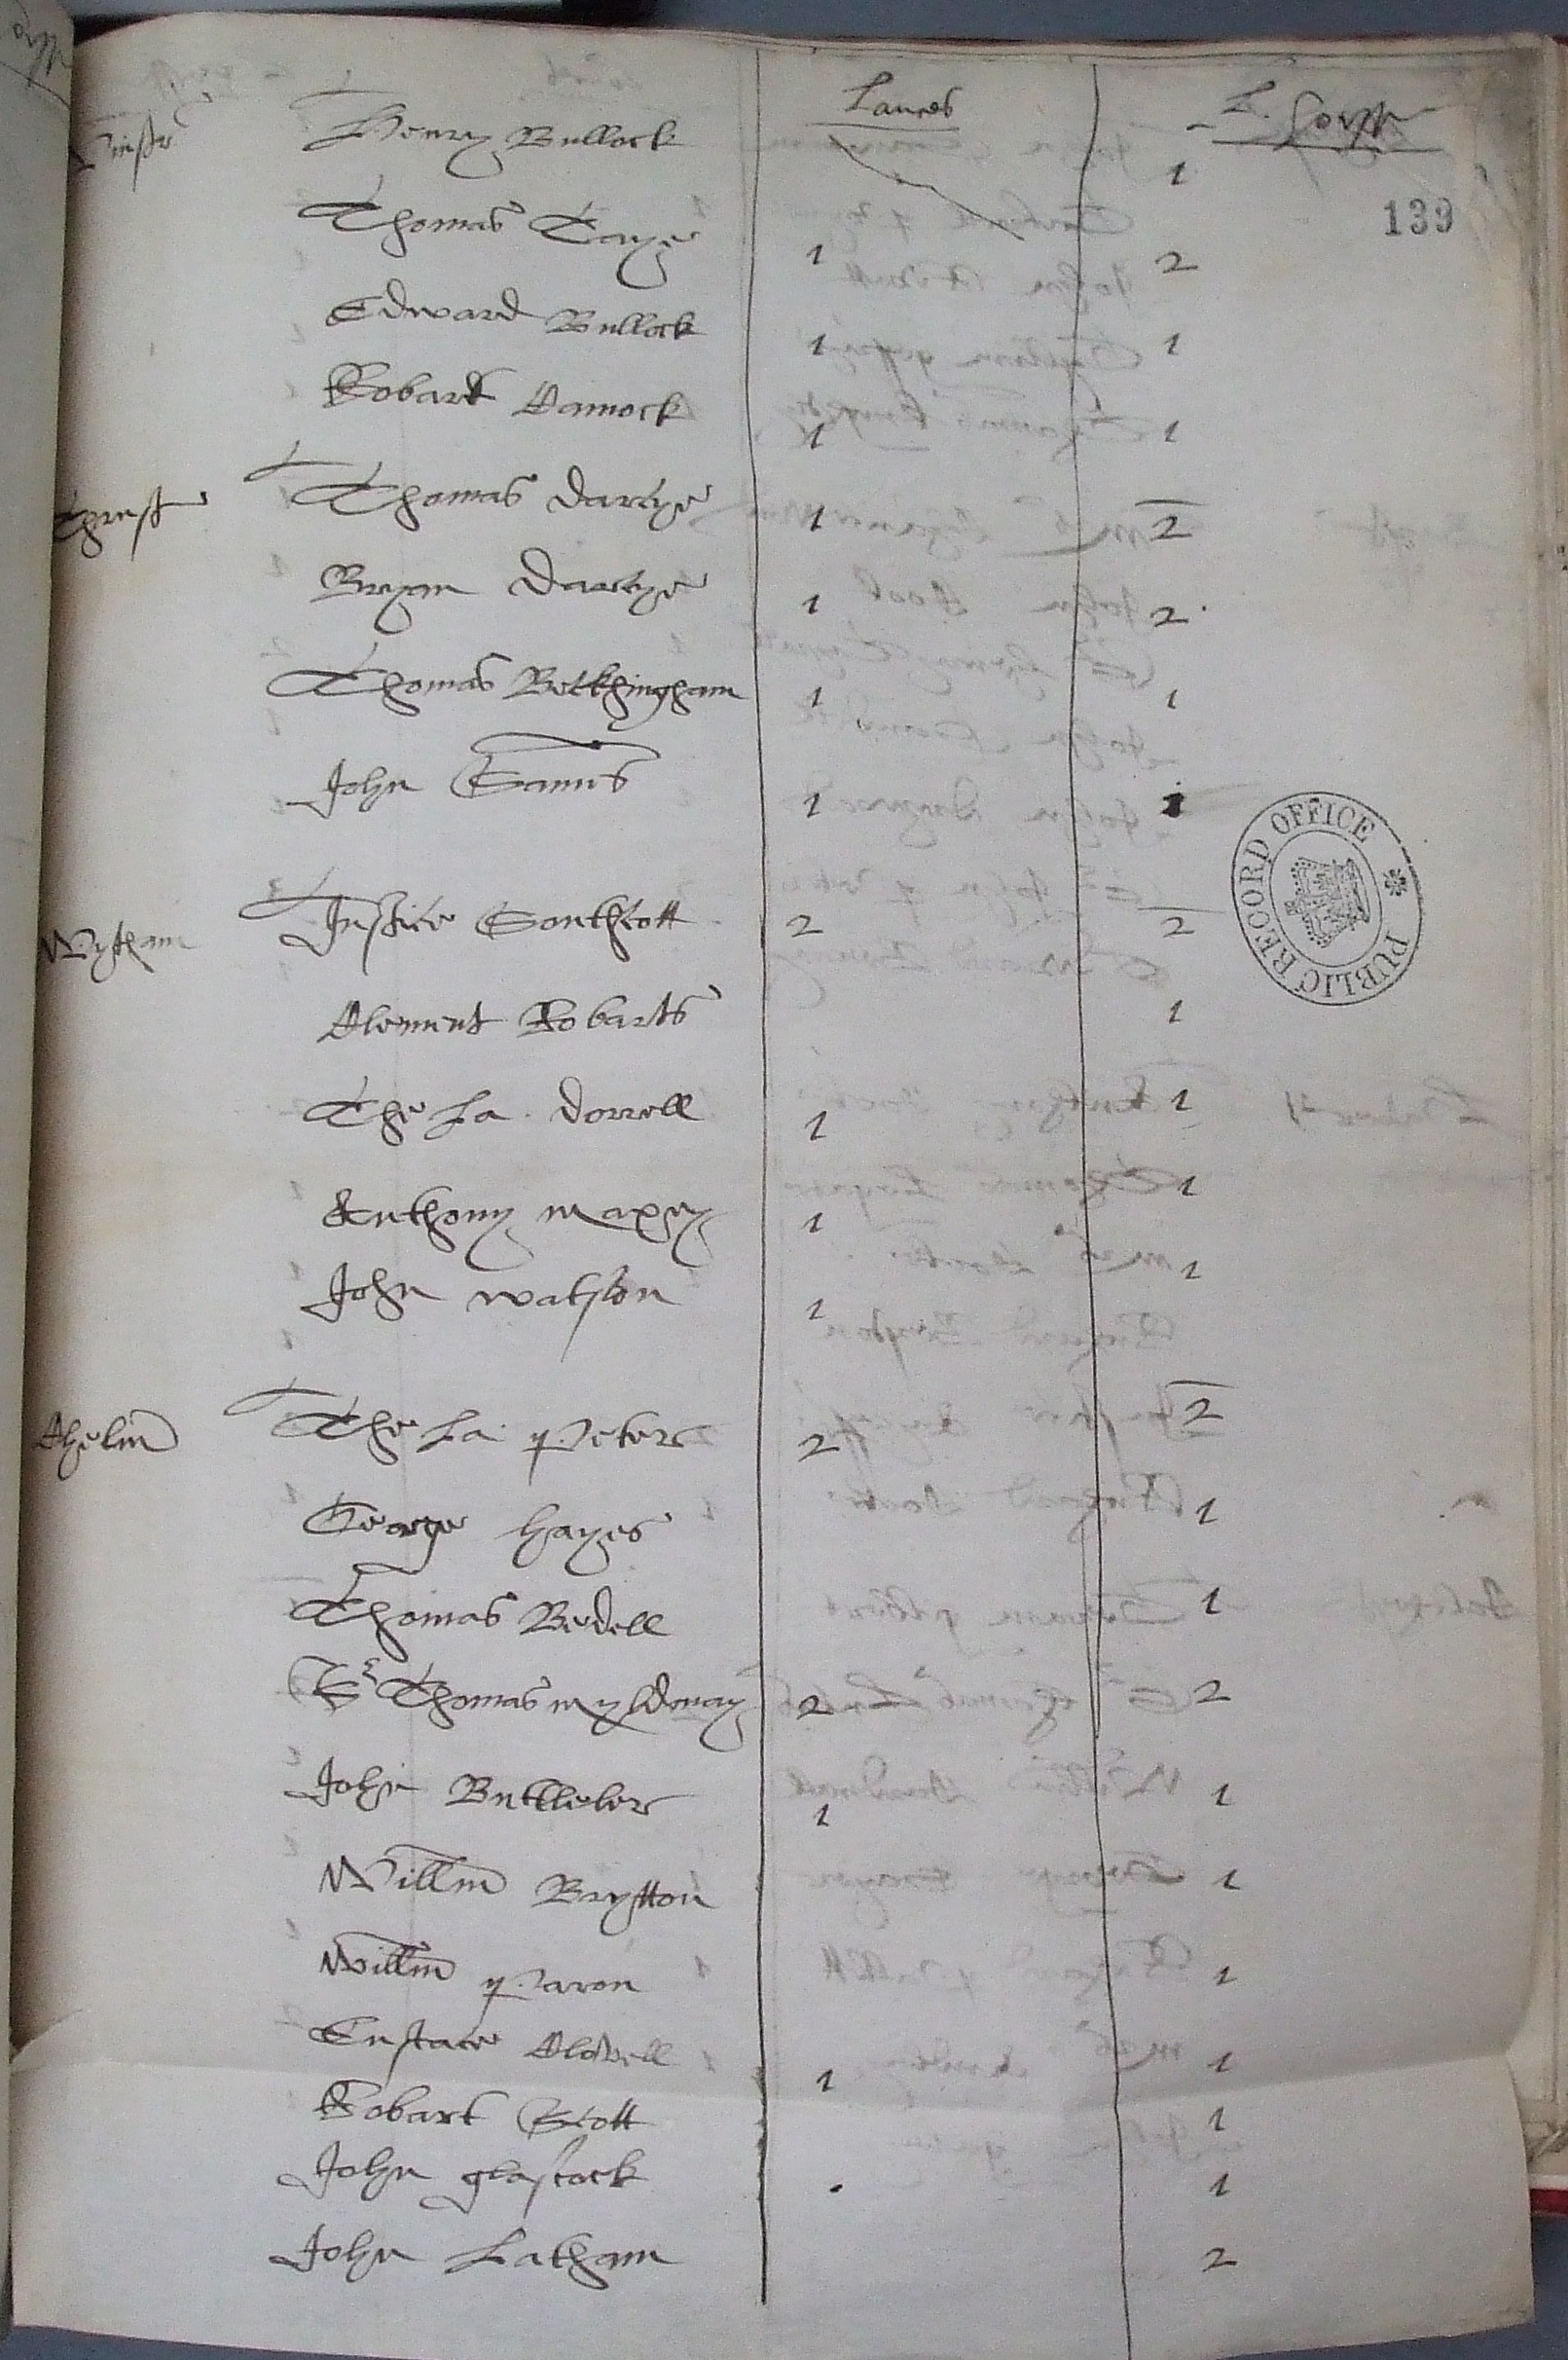 Lances L. horss
Henry Bullock 1
139
Thomas Taye 1 2
Edward Bullock 1 1
Robart Camock 1 1
Thurst Thomas Darcye 1 2
Bryan Darcye 1 2
Thomas Beckhingham 1 1
John Sames 1 1
PUBLIC RECORD OFFICE
Wytham Justice Southcott 2 2
Clement Robarts 1
The La. Dorrell 1 1
Anthony maxey 1 1
John watson 1 1
Chelm The La peter 2 2
George hayes 1
Thomas Bedell 1
Sr Thomas myldmay 2 2
John Buttler 1 1
Willm Brytton 1
Willm paron 1
Eustace Clovell 1 1
Robart Scott 1
John glascock 1
John Latham 2